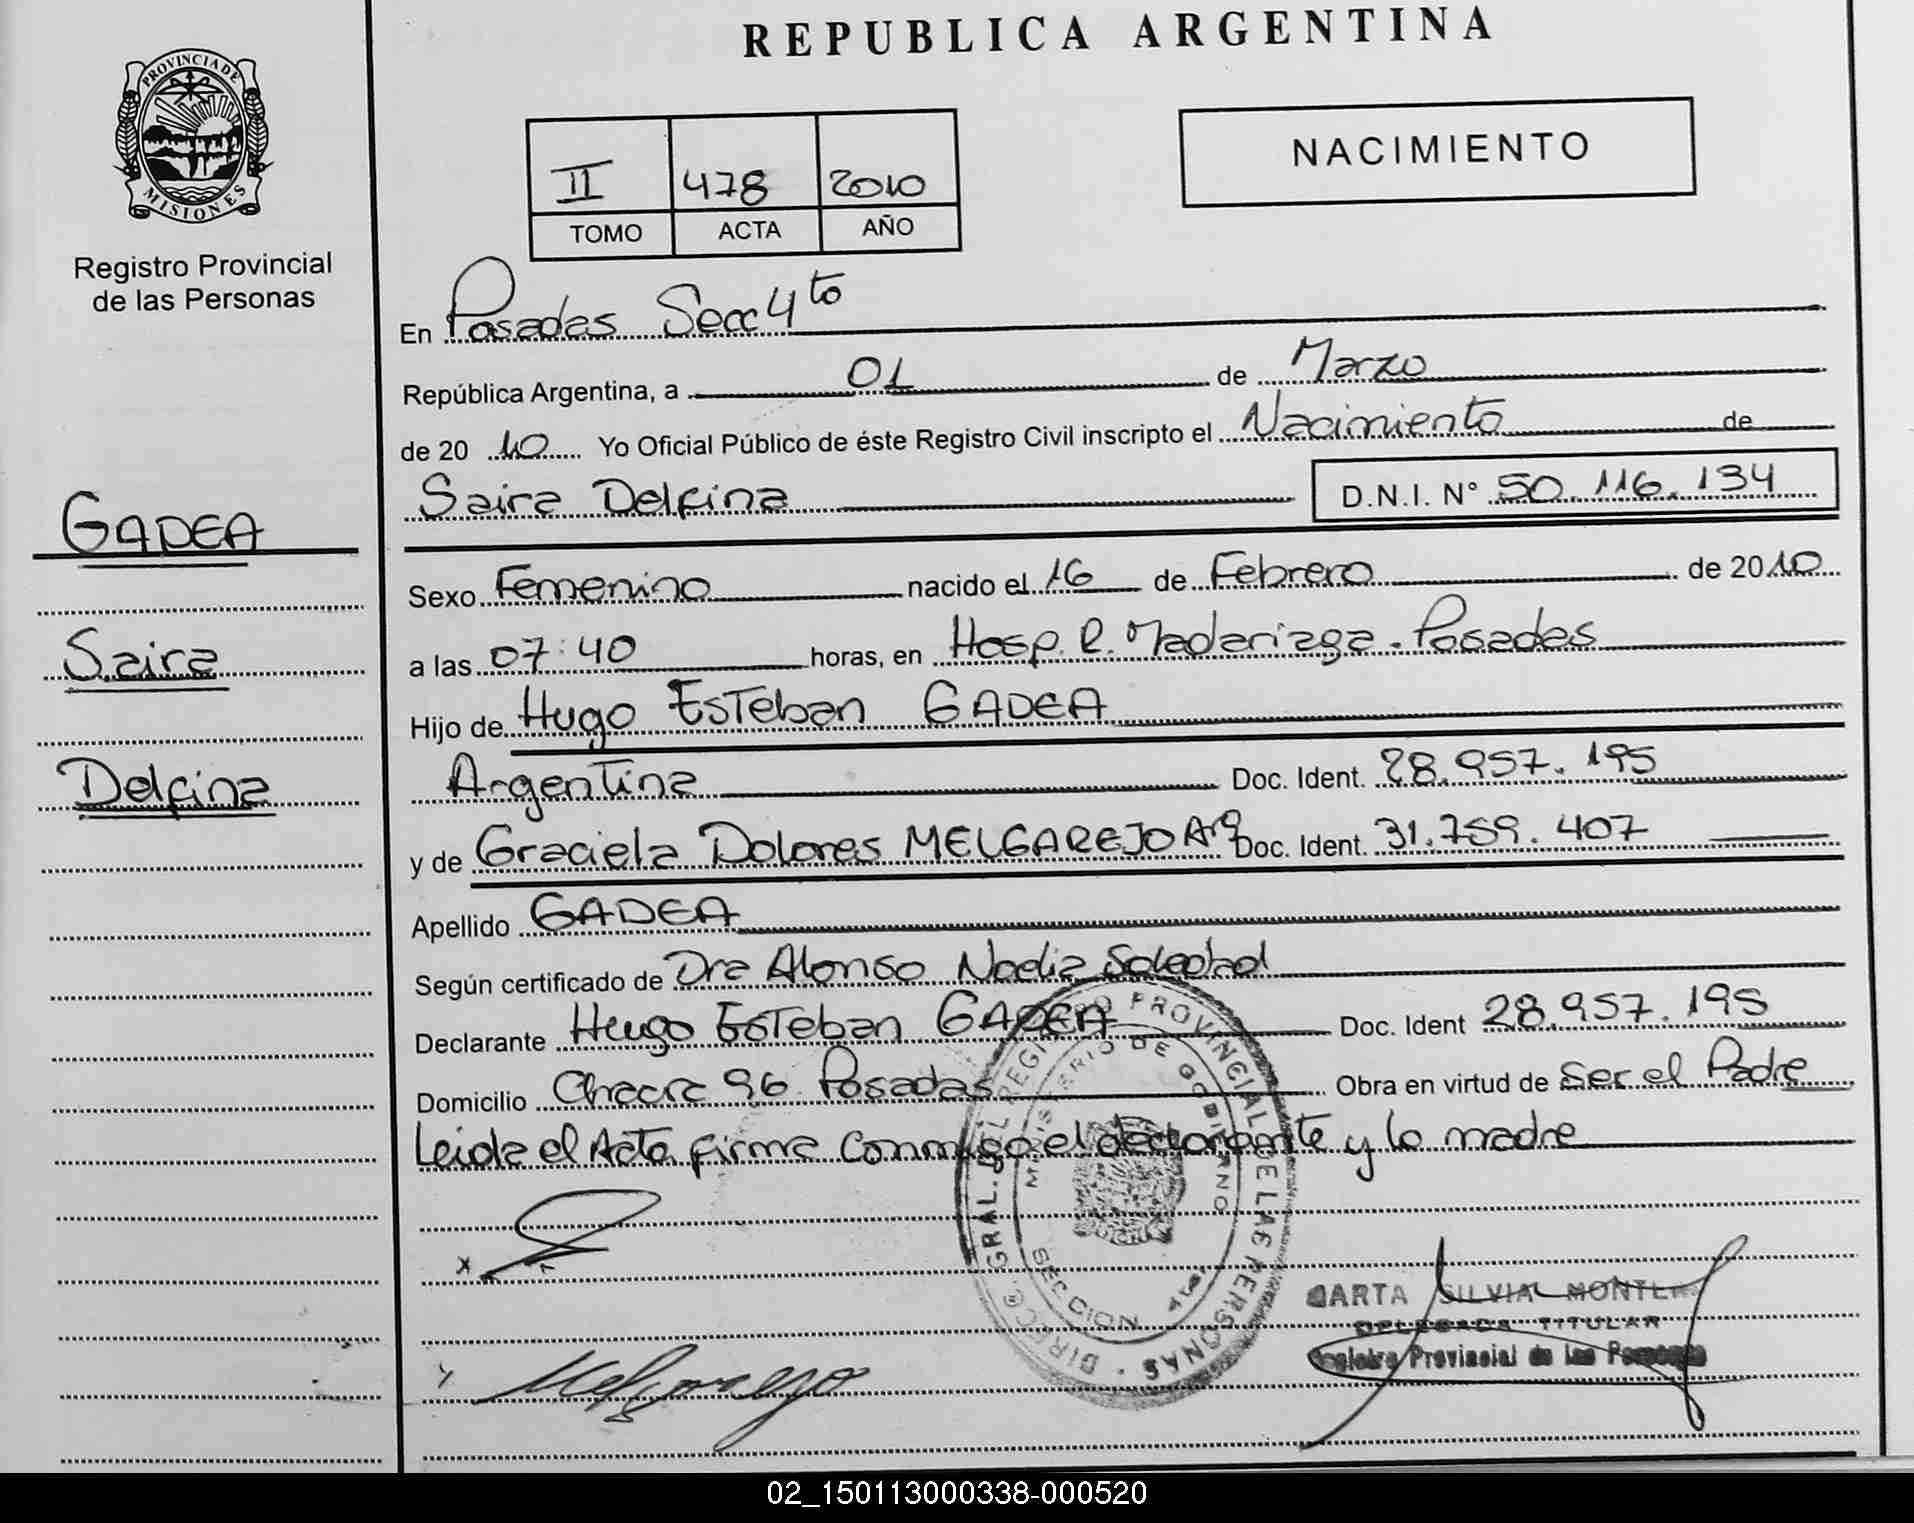 REPUBLICA ARGENTINA
PROVINCIA DE
MISIONES
Registro Provincial
de las Personas
II 478 2010
TOMO ACTA AÑO
NACIMIENTO
En Posadas Secc 4to
República Argentina, a 01 de Marzo
de 2010 Yo Oficial Público de éste Registro Civil inscripto el Nacimiento de
Saira Delfina D.N.I. N° 50.116.134
GADEA
Saira
Delfina
Sexo Femenino nacido el 16 de Febrero de 2010
a las 07:40 horas, en Hosp. R. Madariaga. Posadas
Hijo de Hugo Esteban GADEA
Argentina Doc. Ident. 28.957.195
y de Graciela Dolores MELGAREJO Arg Doc. Ident. 31.759.407
Apellido GADEA
Según certificado de Dra Alonso Nadia Soledad
Declarante Hugo Esteban GADEA Doc. Ident 28.957.195
Domicilio Chacra 96 Posadas Obra en virtud de Ser el Padre
Leida el Acta firma conmigo el declarante y la madre
DIRECC. GRAL. DEL REGISTRO PROVINCIAL DE LAS PERSONAS
MINISTERIO DE GOBIERNO
SECCION 4ta.
x
Melgarejo
SILVIA
DELEGADA TITULAR
Registro Provincial de las Personas
02_150113000338-000520